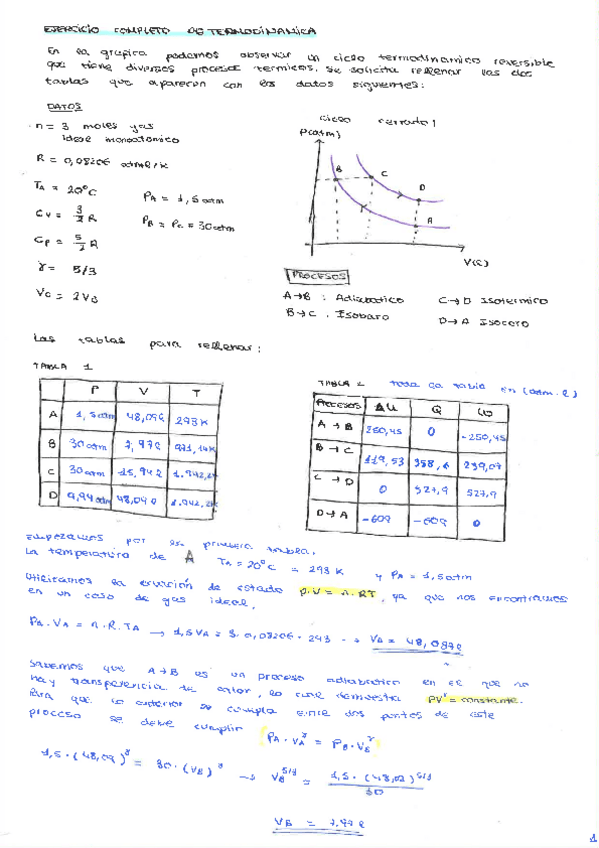 EJERCICIO COMPLETO DE TERMODINAMICA
En la gráfica podemos observar un ciclo termodinamico reversible
que tiene diversos procesos termicos. Se solicita rellenar las dos
tablas que aparecen con los datos siguientes:
DATOS
n = 3 moles gas
ideal monoatomico
R = 0,08206 atm·l/K
TA = 20ºC
PA = 1,5 atm
CV = 3/2 R
PB = PC = 30 atm
CP = 5/2 R
γ = 5/3
VC = 2VB
Ciclo cerrado!
P(atm)
B
C
D
A
V(l)
PROCESOS
A→B : Adiabatico
C→D Isotermico
B→C : Isobaro
D→A Isocoro
Las tablas para rellenar:
TABLA 1
P V T
A 1,5 atm 48,09l 293K
B 30 atm 7,97l 971,14K
C 30 atm 15,94l 1.942,2K
D 9,94 atm 48,04l 1.942,2K
TABLA 2 toda la tabla en (atm·l)
PROCESOS ΔU Q W
A→B 250,45 0 -250,45
B→C 239,07
C→D 0 527,9 527,9
D→A -609 -609 0
Empezamos por la primera tabla.
La temperatura de A TA = 20ºC = 293 K y PA = 1,5 atm
Utilizamos la ecuación de estado P·V = n·RT, ya que nos encontramos
en un caso de gas ideal.
PA·VA = n·R·TA → 1,5VA = 3·0,08206·293 → VA = 48,087l
Sabemos que A→B es un proceso adiabatico en el que no
hay transferencia de calor, lo cual demuestra PVγ = constante.
Para que lo anterior se cumpla entre dos puntos de este
proceso se debe cumplir PA·VAγ = PB·VBγ
1,5·(48,09)γ = 30·(VB)γ → VB5/3 = 1,5·(48,02)5/3 / 30
VB = 7,97l
1